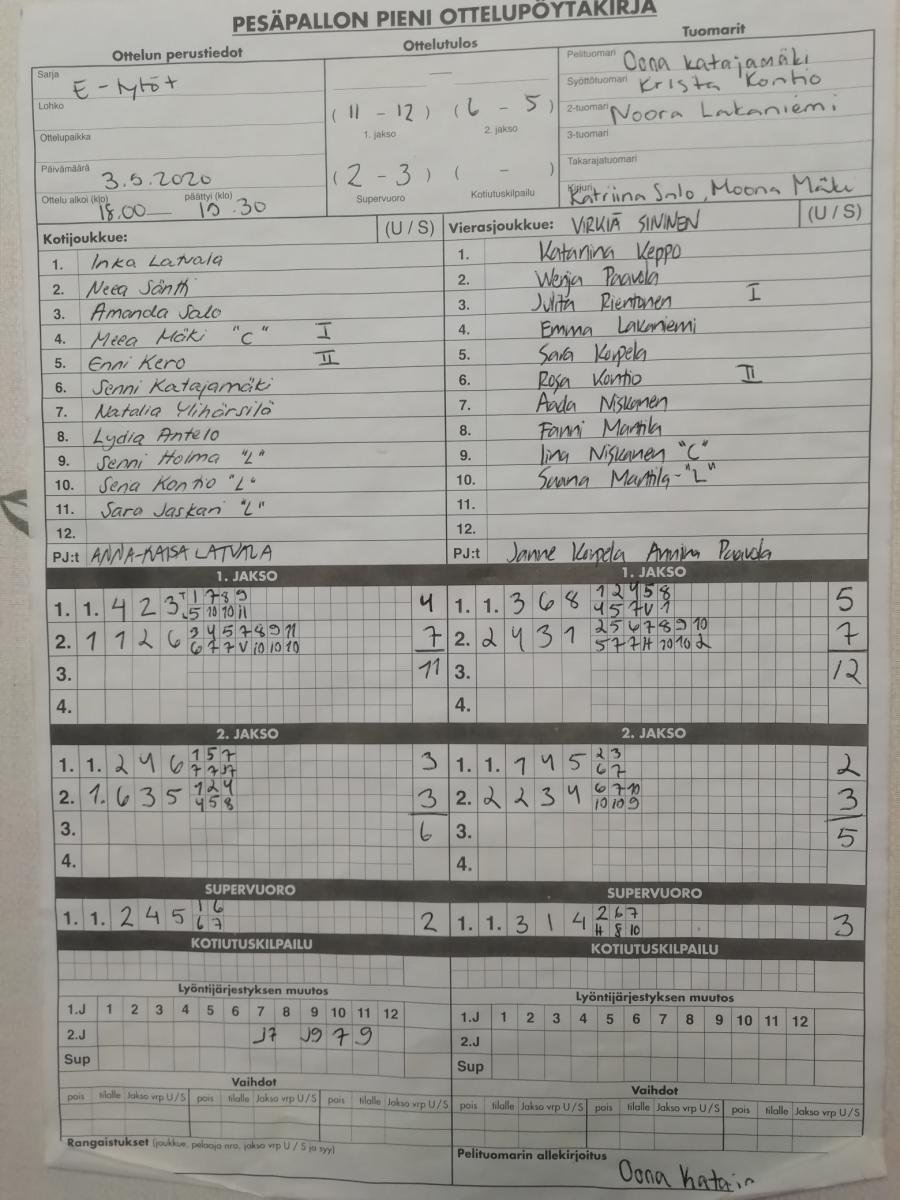 PESÄPALLON PIENI OTTELUPÖYTÄKIRJA
Ottelun perustiedot Ottelutulos Tuomarit
Sarja E-tytöt
Lohko
Ottelupaikka
Päivämäärä 3.5.2020
Ottelu alkoi (klo) 18.00 päättyi (klo) 19.30
—
(11 - 12) (6 - 5)
1. jakso 2. jakso
(2 - 3) ( - )
Supervuoro Kotiutuskilpailu
Pelituomari Oona Katajamäki
Syöttötuomari Krista Kontio
2-tuomari Noora Lakaniemi
3-tuomari
Takarajatuomari
Kirjuri Katriina Salo, Moona Mäki
Kotijoukkue: (U / S)
1. Inka Latvala
2. Neea Säntti
3. Amanda Salo
4. Meea Mäki "C" I
5. Enni Kero II
6. Senni Katajamäki
7. Natalia Ylihärsilä
8. Lydia Antelo
9. Senni Holma "L"
10. Sena Kontio "L"
11. Sara Jaskari "L"
12.
PJ:t ANNA-KAISA LATVALA
Vierasjoukkue: VIRKIÄ SININEN (U / S)
1. Katariina Keppo
2. Wenja Paavola
3. Julita Rientonen I
4. Emma Lakaniemi
5. Sara Korpela
6. Rosa Kontio II
7. Aada Niskanen
8. Fanni Mantila
9. Iina Niskanen "C"
10. Saana Mantila "L"
11.
12.
PJ:t Janne Korpela Annina Paavola
1. JAKSO
1. 1. 4 2 3 1 7 8 9 4
5 10 10 11
2. 1 1 2 6 3 4 5 7 8 9 11 7
6 7 7 V 10 10 10
3. 11
4.
1. JAKSO
1. 1. 3 6 8 1 2 4 5 8 5
4 5 7 V 1
2. 2 4 3 1 2 5 6 7 8 9 10 7
5 7 7 H 10 10 2
3. 12
4.
2. JAKSO
1. 1. 2 4 6 1 5 7 3
7 7 J7
2. 1. 6 3 5 1 2 4 3
4 5 8
3. 6
4.
2. JAKSO
1. 1. 1 4 5 2 3 2
6 7
2. 2 2 3 4 6 7 10 3
10 10 9
3. 5
4.
SUPERVUORO
1. 1. 2 4 5 1 6 2
6 7
SUPERVUORO
1. 1. 3 1 4 2 6 7 3
H 8 10
KOTIUTUSKILPAILU
KOTIUTUSKILPAILU
Lyöntijärjestyksen muutos
1.J 1 2 3 4 5 6 7 8 9 10 11 12
2.J J7 J9 7 9
Sup
Lyöntijärjestyksen muutos
1.J 1 2 3 4 5 6 7 8 9 10 11 12
2.J
Sup
Vaihdot
pois tilalle Jakso vrp U / S pois tilalle Jakso vrp U / S pois tilalle Jakso vrp U / S
Vaihdot
pois tilalle Jakso vrp U / S pois tilalle Jakso vrp U / S pois tilalle Jakso vrp U / S
Rangaistukset (joukkue, pelaaja nro, jakso vrp U / S ja syy)
Pelituomarin allekirjoitus
Oona